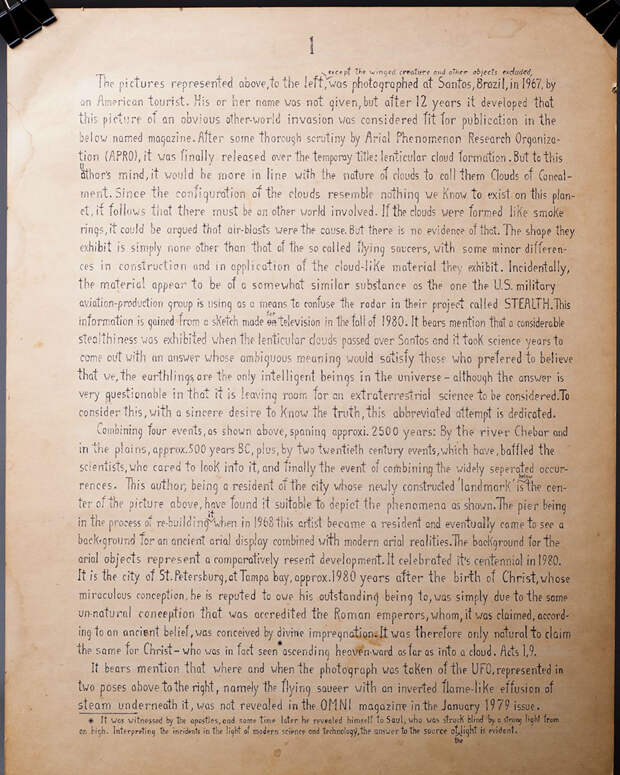 1
except the winged creature and other objects excluded,
The pictures represented above, to the left, was photographed at Santos, Brazil, in 1967, by
an American tourist. His or her name was not given, but after 12 years it developed that
this picture of an obvious other-world invasion was considered fit for publication in the
below named magazine. After some thorough scrutiny by Arial Phenomenon Research Organiza-
tion (APRO), it was finally released over the temporay title: lenticular cloud formation. But to this
author's mind, it would be more in line with the nature of clouds to call them Clouds of Conceal-
ment. Since the configuration of the clouds resemble nothing we know to exist on this plan-
et, it follows that there must be an other world involved. If the clouds were formed like smoke
rings, it could be argued that air-blasts were the cause. But there is no evidence of that. The shape they
exhibit is simply none other than that of the so called flying saucers, with some minor differen-
ces in construction and in application of the cloud-like material they exhibit. Incidentally,
the material appear to be of a somewhat similar substance as the one the U.S. military
aviation-production group is using as a means to confuse the radar in their project called STEALTH. This
information is gained from a sketch made for television in the fall of 1980. It bears mention that a considerable
stealthiness was exhibited when the lenticular clouds passed over Santos and it took science years to
come out with an answer whose ambiguous meaning would satisfy those who prefered to believe
that we, the earthlings, are the only intelligent beings in the universe - although the answer is
very questionable in that it is leaving room for an extraterrestrial science to be considered. To
consider this, with a sincere desire to know the truth, this abbreviated attempt is dedicated.
Combining four events, as shown above, spaning approxi. 2500 years: By the river Chebar and
in the plains, approx. 500 years BC, plus, by two twentieth century events, which, have, baffled the
scientists, who cared to look into it, and finally the event of combining the widely seperated occur-
rences. This author, being a resident of the city whose newly constructed 'landmark' is below the cen-
ter of the picture above, have found it suitable to depict the phenomena as shown. The pier being
in the process of re-building it when in 1968 this artist became a resident and eventually came to see a
back-ground for an ancient arial display combined with modern arial realities. The background for the
arial objects represent a comparatively resent development. It celebrated it's centennial in 1980.
It is the city of St. Petersburg, at Tampa bay, approx. 1980 years after the birth of Christ, whose
miraculous conception, he is reputed to owe his outstanding being to, was simply due to the same
un-natural conception that was accredited the Roman emperors, whom, it was claimed, accord-
ing to an ancient belief, was conceived by divine impregnation. It was therefore only natural to claim
the same for Christ - who was in fact seen * ascending heaven-ward as far as into a cloud. Acts 1,9.
It bears mention that where and when the photograph was taken of the UFO, represented in
two poses above to the right, namely the flying saucer with an inverted flame-like effusion of
steam underneath it, was not revealed in the OMNI magazine in the January 1979 issue.
* It was witnessed by the apostles, and some time later he revealed himself to Saul, who was struck blind by a strong light from
on high. Interpreting the incidents in the light of modern science and technology, the answer to the source of the light is evident.